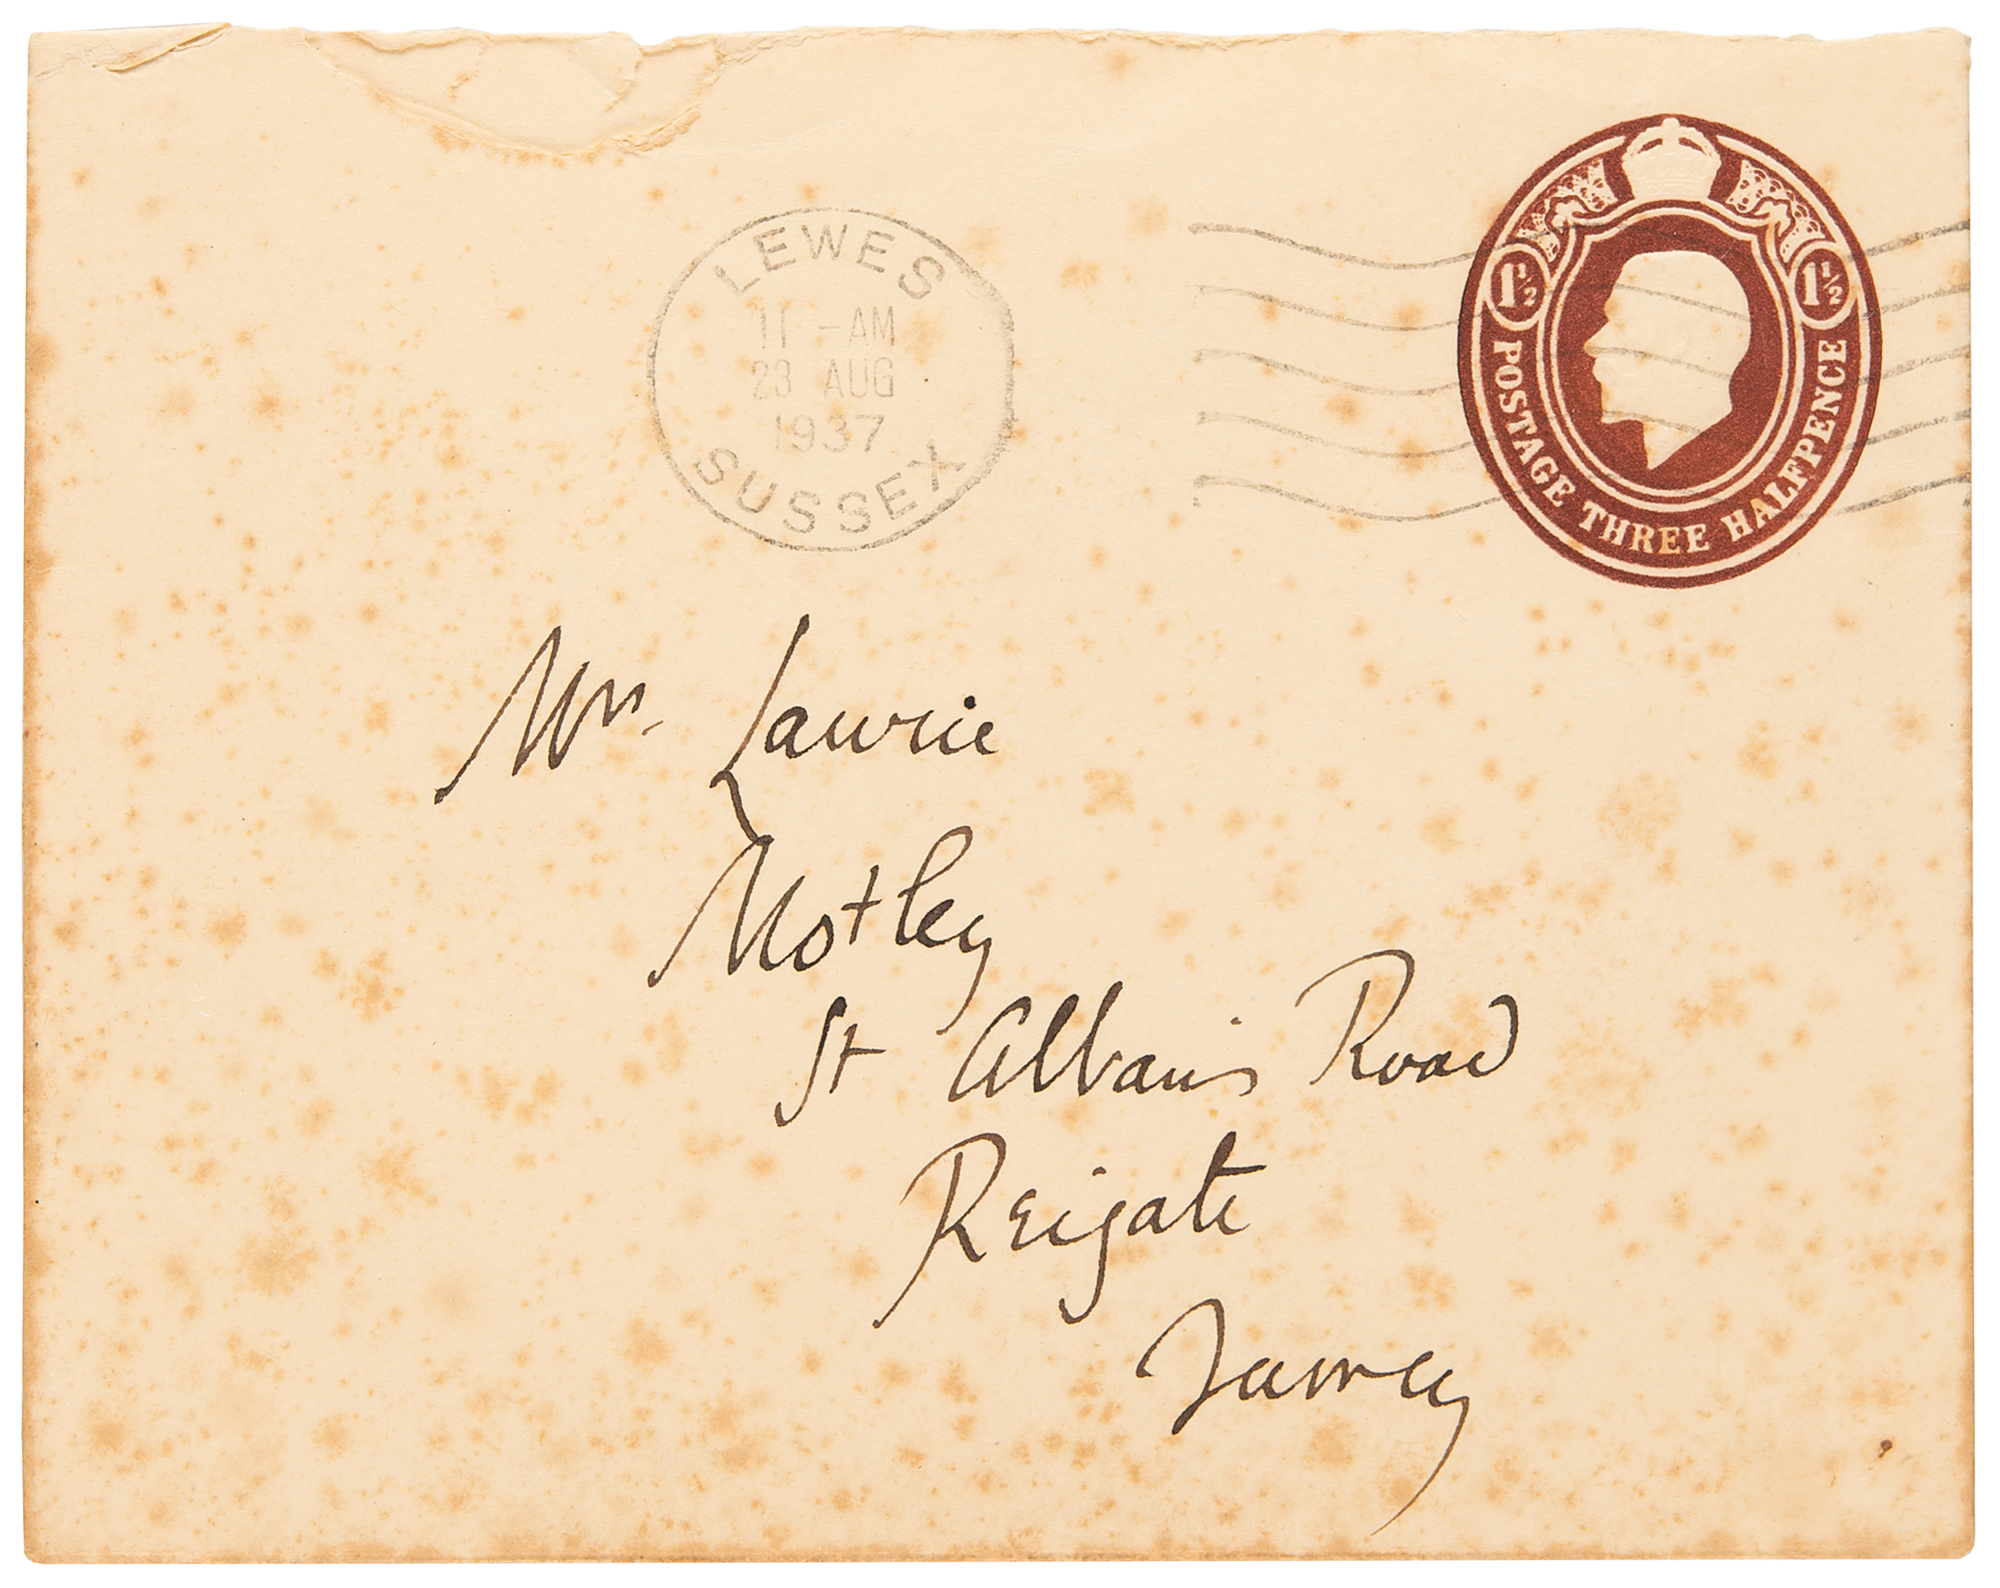 LEWES
11 - AM
23 AUG
1937
SUSSEX
1½ 1½
POSTAGE THREE HALFPENCE
Mrs. Lawrie
Motley
St Alban's Road
Reigate
Surrey